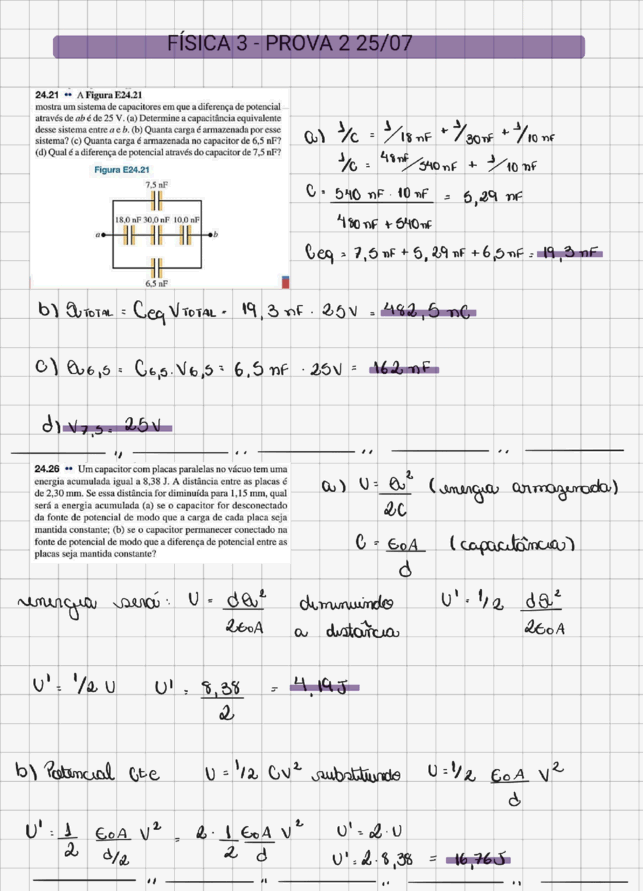 FÍSICA 3 - PROVA 2 25/07
24.21 •• A Figura E24.21
mostra um sistema de capacitores em que a diferença de potencial
através de ab é de 25 V. (a) Determine a capacitância equivalente
desse sistema entre a e b. (b) Quanta carga é armazenada por esse
sistema? (c) Quanta carga é armazenada no capacitor de 6,5 nF?
(d) Qual é a diferença de potencial através do capacitor de 7,5 nF?
Figura E24.21
7,5 nF
18,0 nF 30,0 nF 10,0 nF
a b
6,5 nF
a) 1/C = 1/18 nF + 1/30 nF + 1/10 nF
1/C = 48 nF/540 nF + 1/10 nF
C = 540 nF · 10 nF / 480 nF + 540 nF = 5,29 nF
Ceq = 7,5 nF + 5,29 nF + 6,5 nF = 19,3 nF
b) QTOTAL = Ceq VTOTAL = 19,3 nF · 25V = 482,5 nC
c) Q6,5 = C6,5 · V6,5 = 6,5 nF · 25V = 162 nF
d) V7,5 = 25V
24.26 •• Um capacitor com placas paralelas no vácuo tem uma
energia acumulada igual a 8,38 J. A distância entre as placas é
de 2,30 mm. Se essa distância for diminuída para 1,15 mm, qual
será a energia acumulada (a) se o capacitor for desconectado
da fonte de potencial de modo que a carga de cada placa seja
mantida constante; (b) se o capacitor permanecer conectado na
fonte de potencial de modo que a diferença de potencial entre as
placas seja mantida constante?
a) U = Q²/2C (energia armazenada)
C = ε0A/d (capacitância)
energia será: U = dQ²/2ε0A diminuindo a distância U' = 1/2 dQ²/2ε0A
U' = 1/2 U U' = 8,38/2 = 4,19J
b) Potencial Cte U = 1/2 CV² substituindo U = 1/2 ε0A/d V²
U' = 1/2 ε0A/d/2 V² = 2 · 1/2 ε0A/d V² U' = 2 · U
U' = 2 · 8,38 = 16,76J